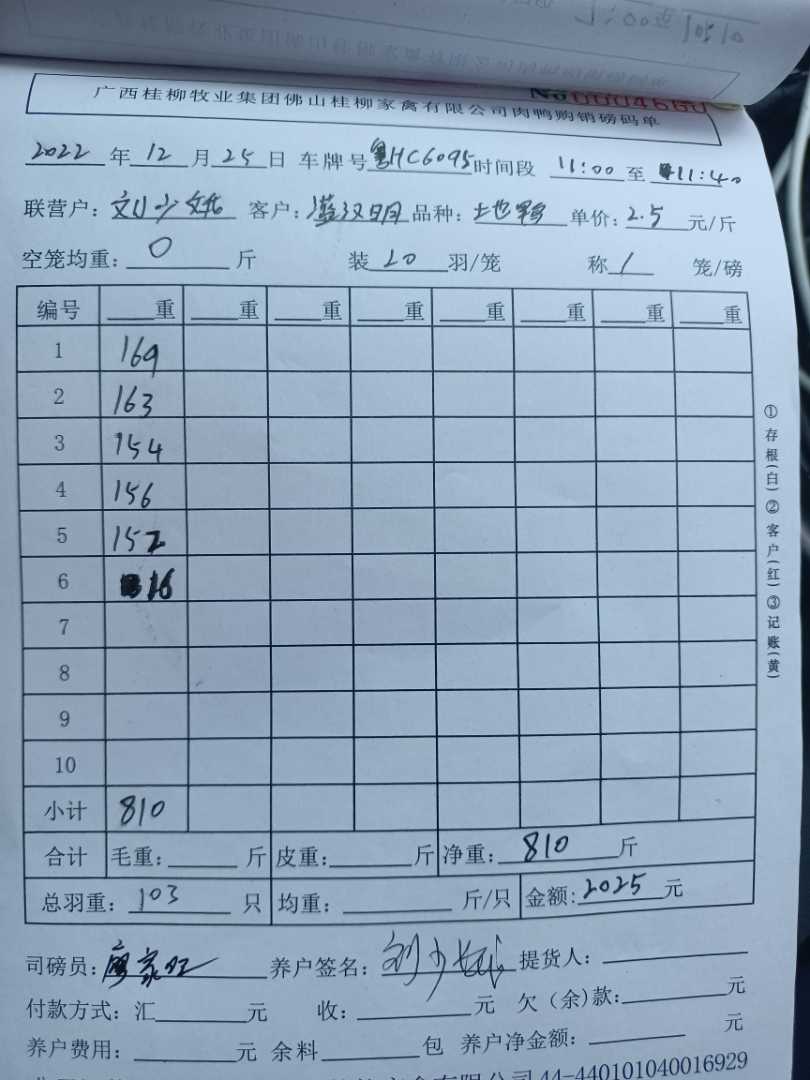 广西桂柳牧业集团佛山桂柳家禽有限公司肉鸭购销磅码单
No 0004660
2022 年 12 月 25 日 车牌号 粤HC6095 时间段 11:00 至 11:40
联营户: 刘少 客户: 汉明 品种: 土也鸭 单价: 2.5 元/斤
空笼均重: 0 斤 装 20 羽/笼 称 1 笼/磅
编号 重 重 重 重 重 重 重 重
1 169
2 163
3 154
4 156
5 152
6 16
7
8
9
10
小计 810
合计 毛重: 斤 皮重: 斤 净重: 810 斤
总羽重: 103 只 均重: 斤/只 金额: 2025 元
司磅员: 廖家旺 养户签名: 刘少 提货人:
付款方式: 汇 元 收: 元 欠(余)款: 元
养户费用: 元 余料 包 养户净金额: 元
44-440101040016929
①存根(白)②客户(红)③记账(黄)